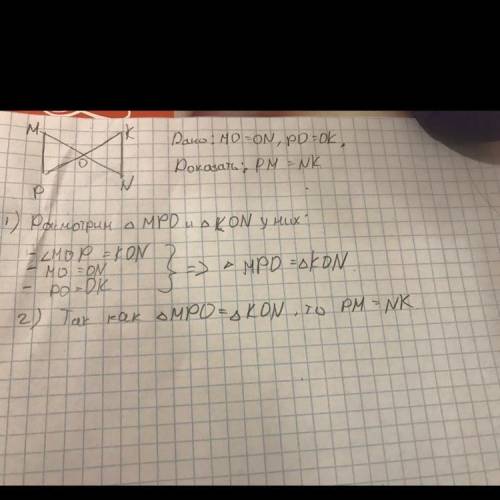 M K
Дано: MO=ON, PO=OK,
O
Доказать: PM = NK
P N
1) Рассмотрим △ MPO и △ KON у них:
- ∠MOP = KON
- MO = ON
- PO = OK
} => △ MPO = △KON
2) Так как △MPO = △KON, то PM = NK